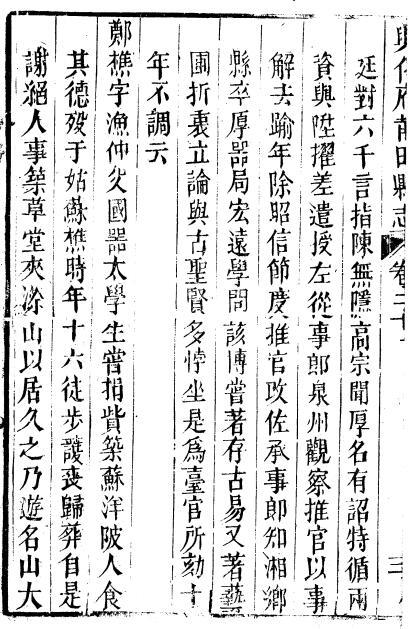 興化府莆田縣志
卷二十
廷對六千言指陳無隱高宗聞厚名有詔特循兩
資與陞擢差遣授左從事郎泉州觀察推官以事
解去踰年除昭信節度推官改佐承事郎知湘鄉
縣卒厚器局宏遠學問該博嘗著存古易又著藝
圃折衷立論與古聖賢多悖坐是爲臺官所劾十
年不調云
鄭樵字漁仲父國器太學生嘗捐貲築蘇洋陂人食
其德歿于姑蘇樵時年十六徒步護喪歸葬自是
謝絕人事築草堂夾漈山以居久之乃遊名山大